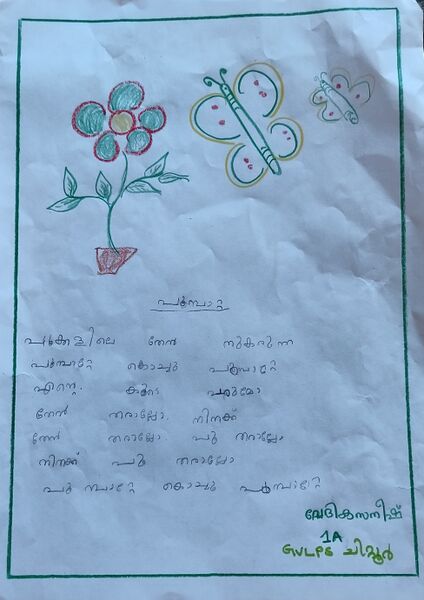 പൂമ്പാറ്റ
പൂക്കളിലെ തേൻ നുകരുന്ന
പൂമ്പാറ്റേ കൊച്ചു പൂമ്പാറ്റേ
എന്റെ കൂടെ പോരുമോ
തേൻ തരാല്ലോ നിനക്ക്
തേൻ തരാല്ലോ പൂ തരാല്ലോ
നിനക്ക് പൂ തരാല്ലോ
പൂമ്പാറ്റേ കൊച്ചു പൂമ്പാറ്റേ
വേദികസനീഷ്
1A
GVLPS ചിറ്റൂർ